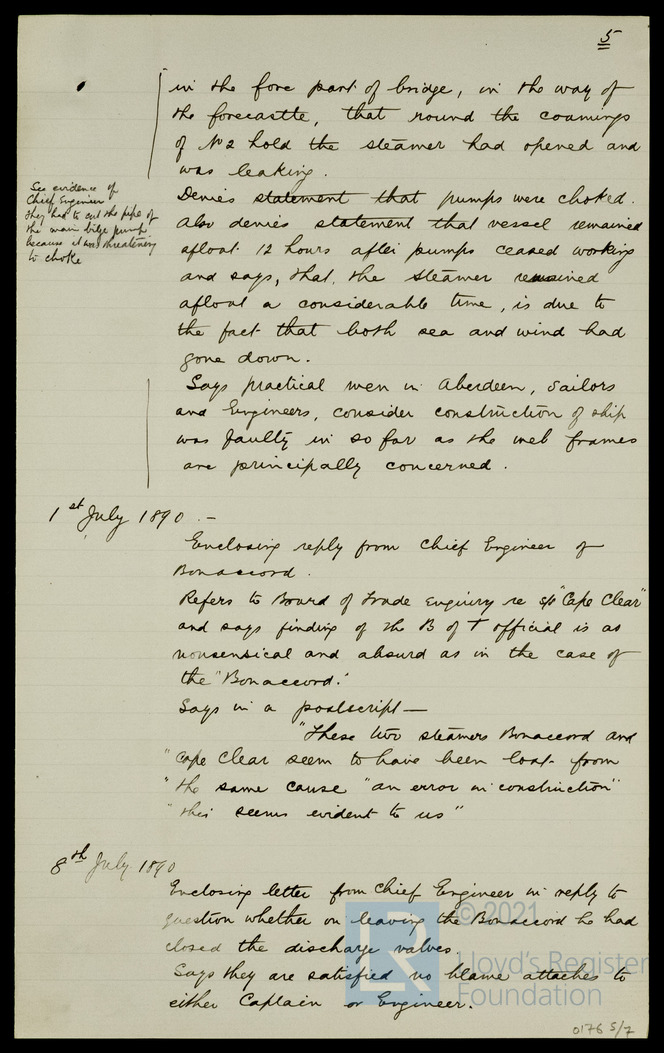 5
in the fore part of bridge, in the way of
the forecastle, that round the coamings
of No 2 hold the steamer had opened and
was leaking.
See evidence of
Chief Engineer
they had to cut the pipe of
the main bilge pump
because it was threatening
to choke
Denies statement that pumps were choked.
Also denies statement that vessel remained
afloat 12 hours after pumps ceased working
and says, that, the steamer remained
afloat a considerable time, is due to
the fact that both sea and wind had
gone down.
Says practical men in Aberdeen, Sailors
and Engineers, consider construction of ship
was faulty in so far as the web frames
are principally concerned.
1st July 1890 . -
Enclosing reply from Chief Engineer of
Bonaccord.
Refers to Board of Trade Enquiry re s/s "Cape Clear"
and says finding of the B of T official is as
nonsensical and absurd as in the case of
the "Bonaccord."
Says in a postscript —
"These two steamers Bonaccord and
"Cape Clear seem to have been lost from
"the same cause "an error in construction"
"this seems evident to us"
8th July 1890
Enclosing letter from Chief Engineer in reply to
question whether on leaving the Bonaccord he had
closed the discharge valves
Says they are satisfied no blame attaches to
either Captain or Engineer.
LR
© 2021
Lloyd's Register
Foundation
0176 5/7